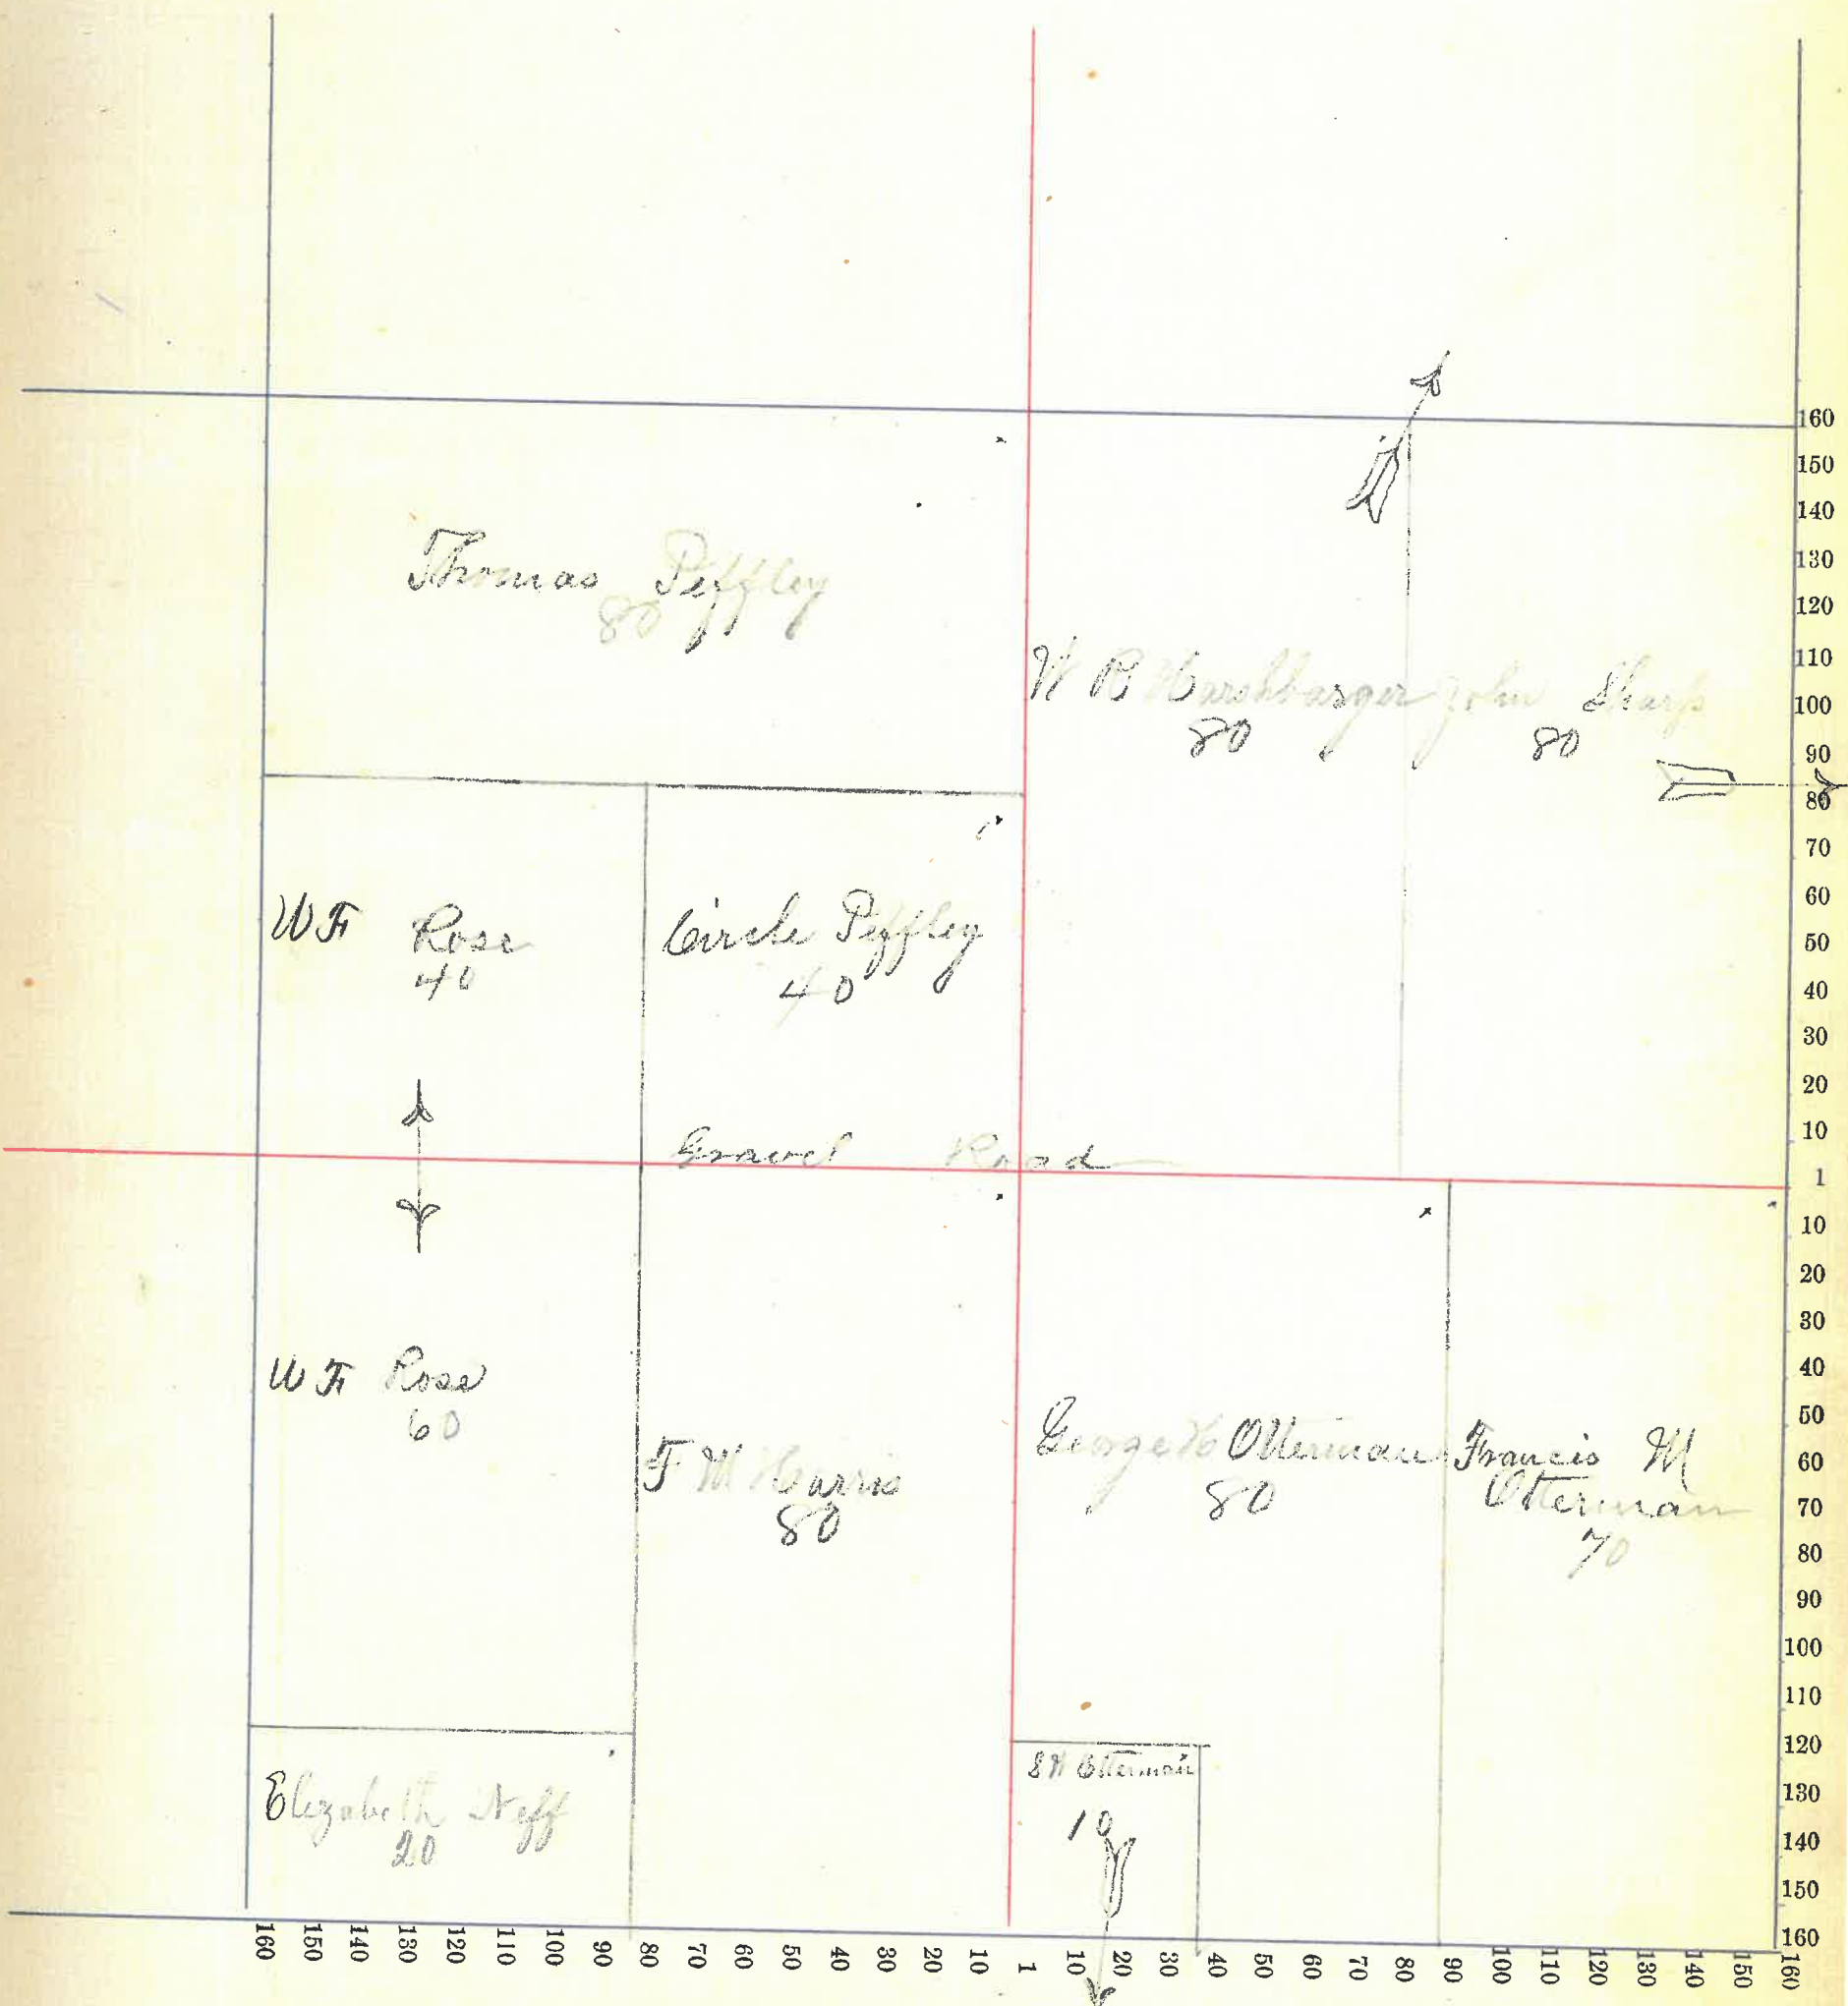 Thomas Peffley
80
W B Harshbarger
80
John Sharp
80
W F Rose
40
Circle Peffley
40
Gravel Road
W F Rose
60
F M Harris
80
George H Otterman
80
Francis M
Otterman
70
Elizabeth Neff
20
Otterman
10
160
150
140
130
120
110
100
90
80
70
60
50
40
30
20
10
1
10
20
30
40
50
60
70
80
90
100
110
120
130
140
150
160
160 150 140 130 120 110 100 90 80 70 60 50 40 30 20 10 1 10 20 30 40 50 60 70 80 90 100 110 120 130 140 150 160